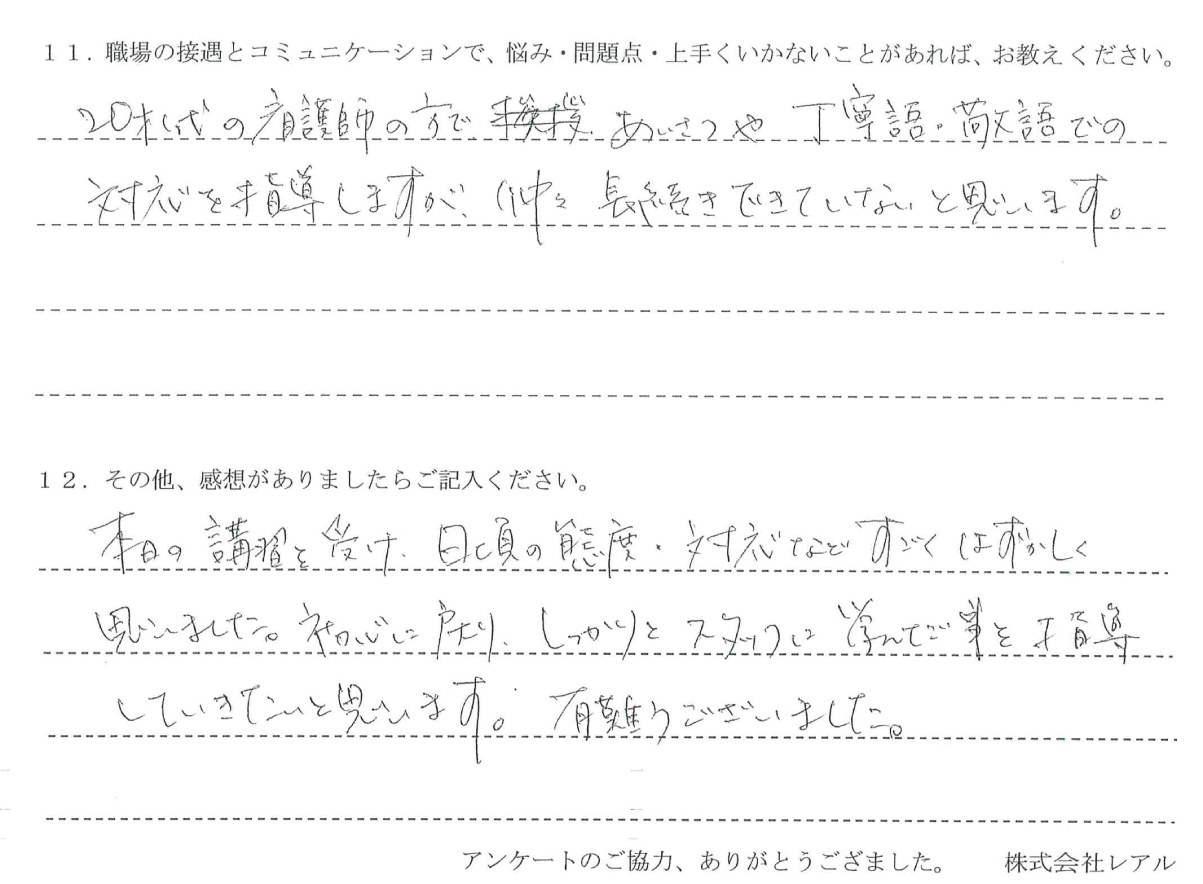 11．職場の接遇とコミュニケーションで、悩み・問題点・上手くいかないことがあれば、お教えください。
20才代の看護師の方で 挨拶 あいさつや 丁寧語・敬語での
対応を指導しますが、仲々 長続きできていないと思います。
12．その他、感想がありましたらご記入ください。
本日の講習を受け、日頃の態度・対応などすごくはずかしく
思いました。初心に戻り、しっかりとスタッフに学んだ事を指導
していきたいと思います。有難うございました。
アンケートのご協力、ありがとうござました。　株式会社レアル